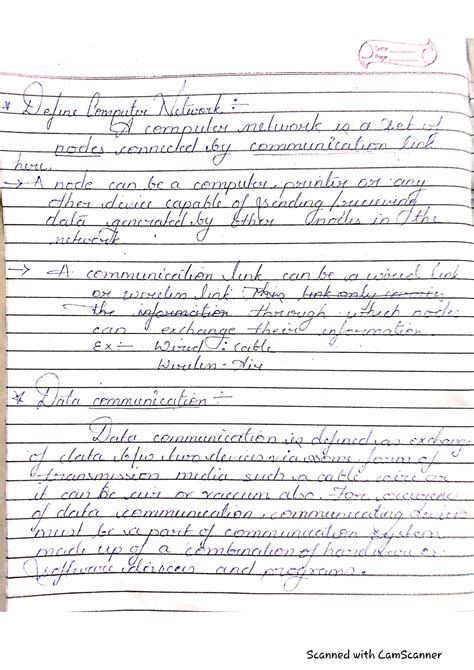 Date
Page
* Define Computer Network :-
A computer network is a set of
nodes connected by communication link
here,
→ A node can be a computer, printer or any
other device capable of sending/recieving
data generated by other nodes in the
network
→ A communication link can be a wired link
or wireless link This link only carries
the information through which nodes
can exchange their information
Ex :- Wired : cable
Wireless - Air
* Data communication :-
Data communication is defined as exchange
of data b/w two devices via some form of
transmission media such a cable, wire or
it can be air or vaccum also. For occurence
of data communication, communicating devices
must be a part of communication system
made up of a combination of hardware or
software devices and programs.
Scanned with CamScanner